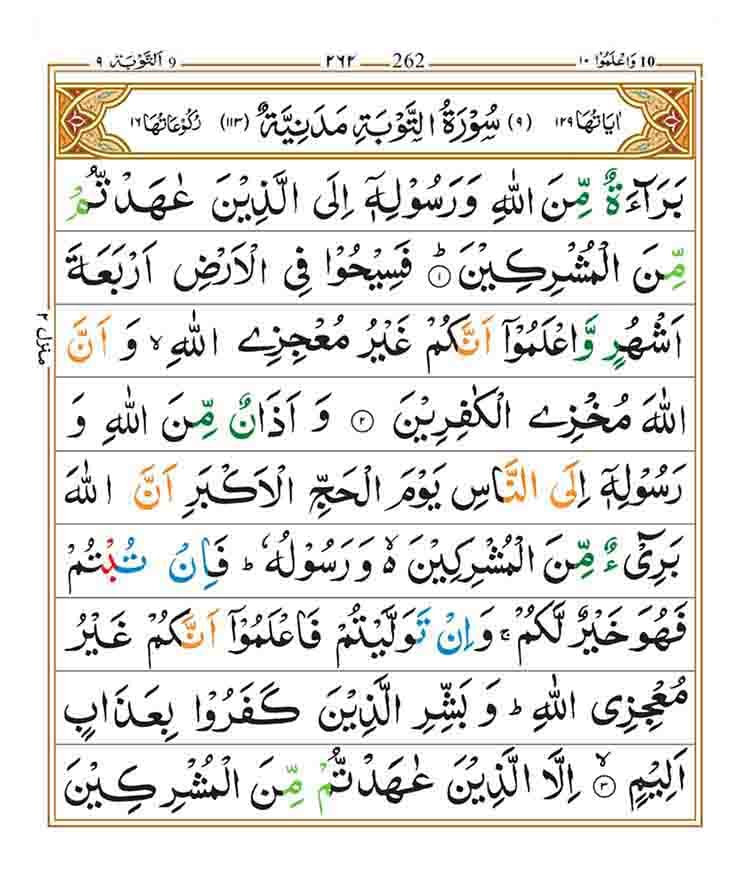 10 وَاعْلَمُوْا ١٠ 262 ٢٦٢ 9 اَلتَّوْبَة ٩
اٰيَاتُهَا ١٢٩ (٩) سُوْرَةُ التَّوْبَةِ مَدَنِيَّةٌ (١١٣) رُكُوْعَاتُهَا ١٦
بَرَآءَةٌ مِّنَ اللّٰهِ وَرَسُوْلِهٖۤ اِلَى الَّذِيْنَ عٰهَدْتُّمْ
مِّنَ الْمُشْرِكِيْنَ ؕ ١ فَسِيْحُوْا فِي الْاَرْضِ اَرْبَعَةَ
اَشْهُرٍ وَّاعْلَمُوْۤا اَنَّكُمْ غَيْرُ مُعْجِزِي اللّٰهِ ۙ وَ اَنَّ
اللّٰهَ مُخْزِي الْكٰفِرِيْنَ ٢ وَ اَذَانٌ مِّنَ اللّٰهِ وَ
رَسُوْلِهٖۤ اِلَى النَّاسِ يَوْمَ الْحَجِّ الْاَكْبَرِ اَنَّ اللّٰهَ
بَرِيْٓءٌ مِّنَ الْمُشْرِكِيْنَ ۙ۬ وَ رَسُوْلُهٗ ؕ فَاِنْ تُبْتُمْ
فَهُوَ خَيْرٌ لَّكُمْ ۚ وَاِنْ تَوَلَّيْتُمْ فَاعْلَمُوْۤا اَنَّكُمْ غَيْرُ
مُعْجِزِي اللّٰهِ ؕ وَ بَشِّرِ الَّذِيْنَ كَفَرُوْا بِعَذَابٍ
اَلِيْمٍ ۙ ٣ اِلَّا الَّذِيْنَ عٰهَدْتُّمْ مِّنَ الْمُشْرِكِيْنَ
منزل ٢